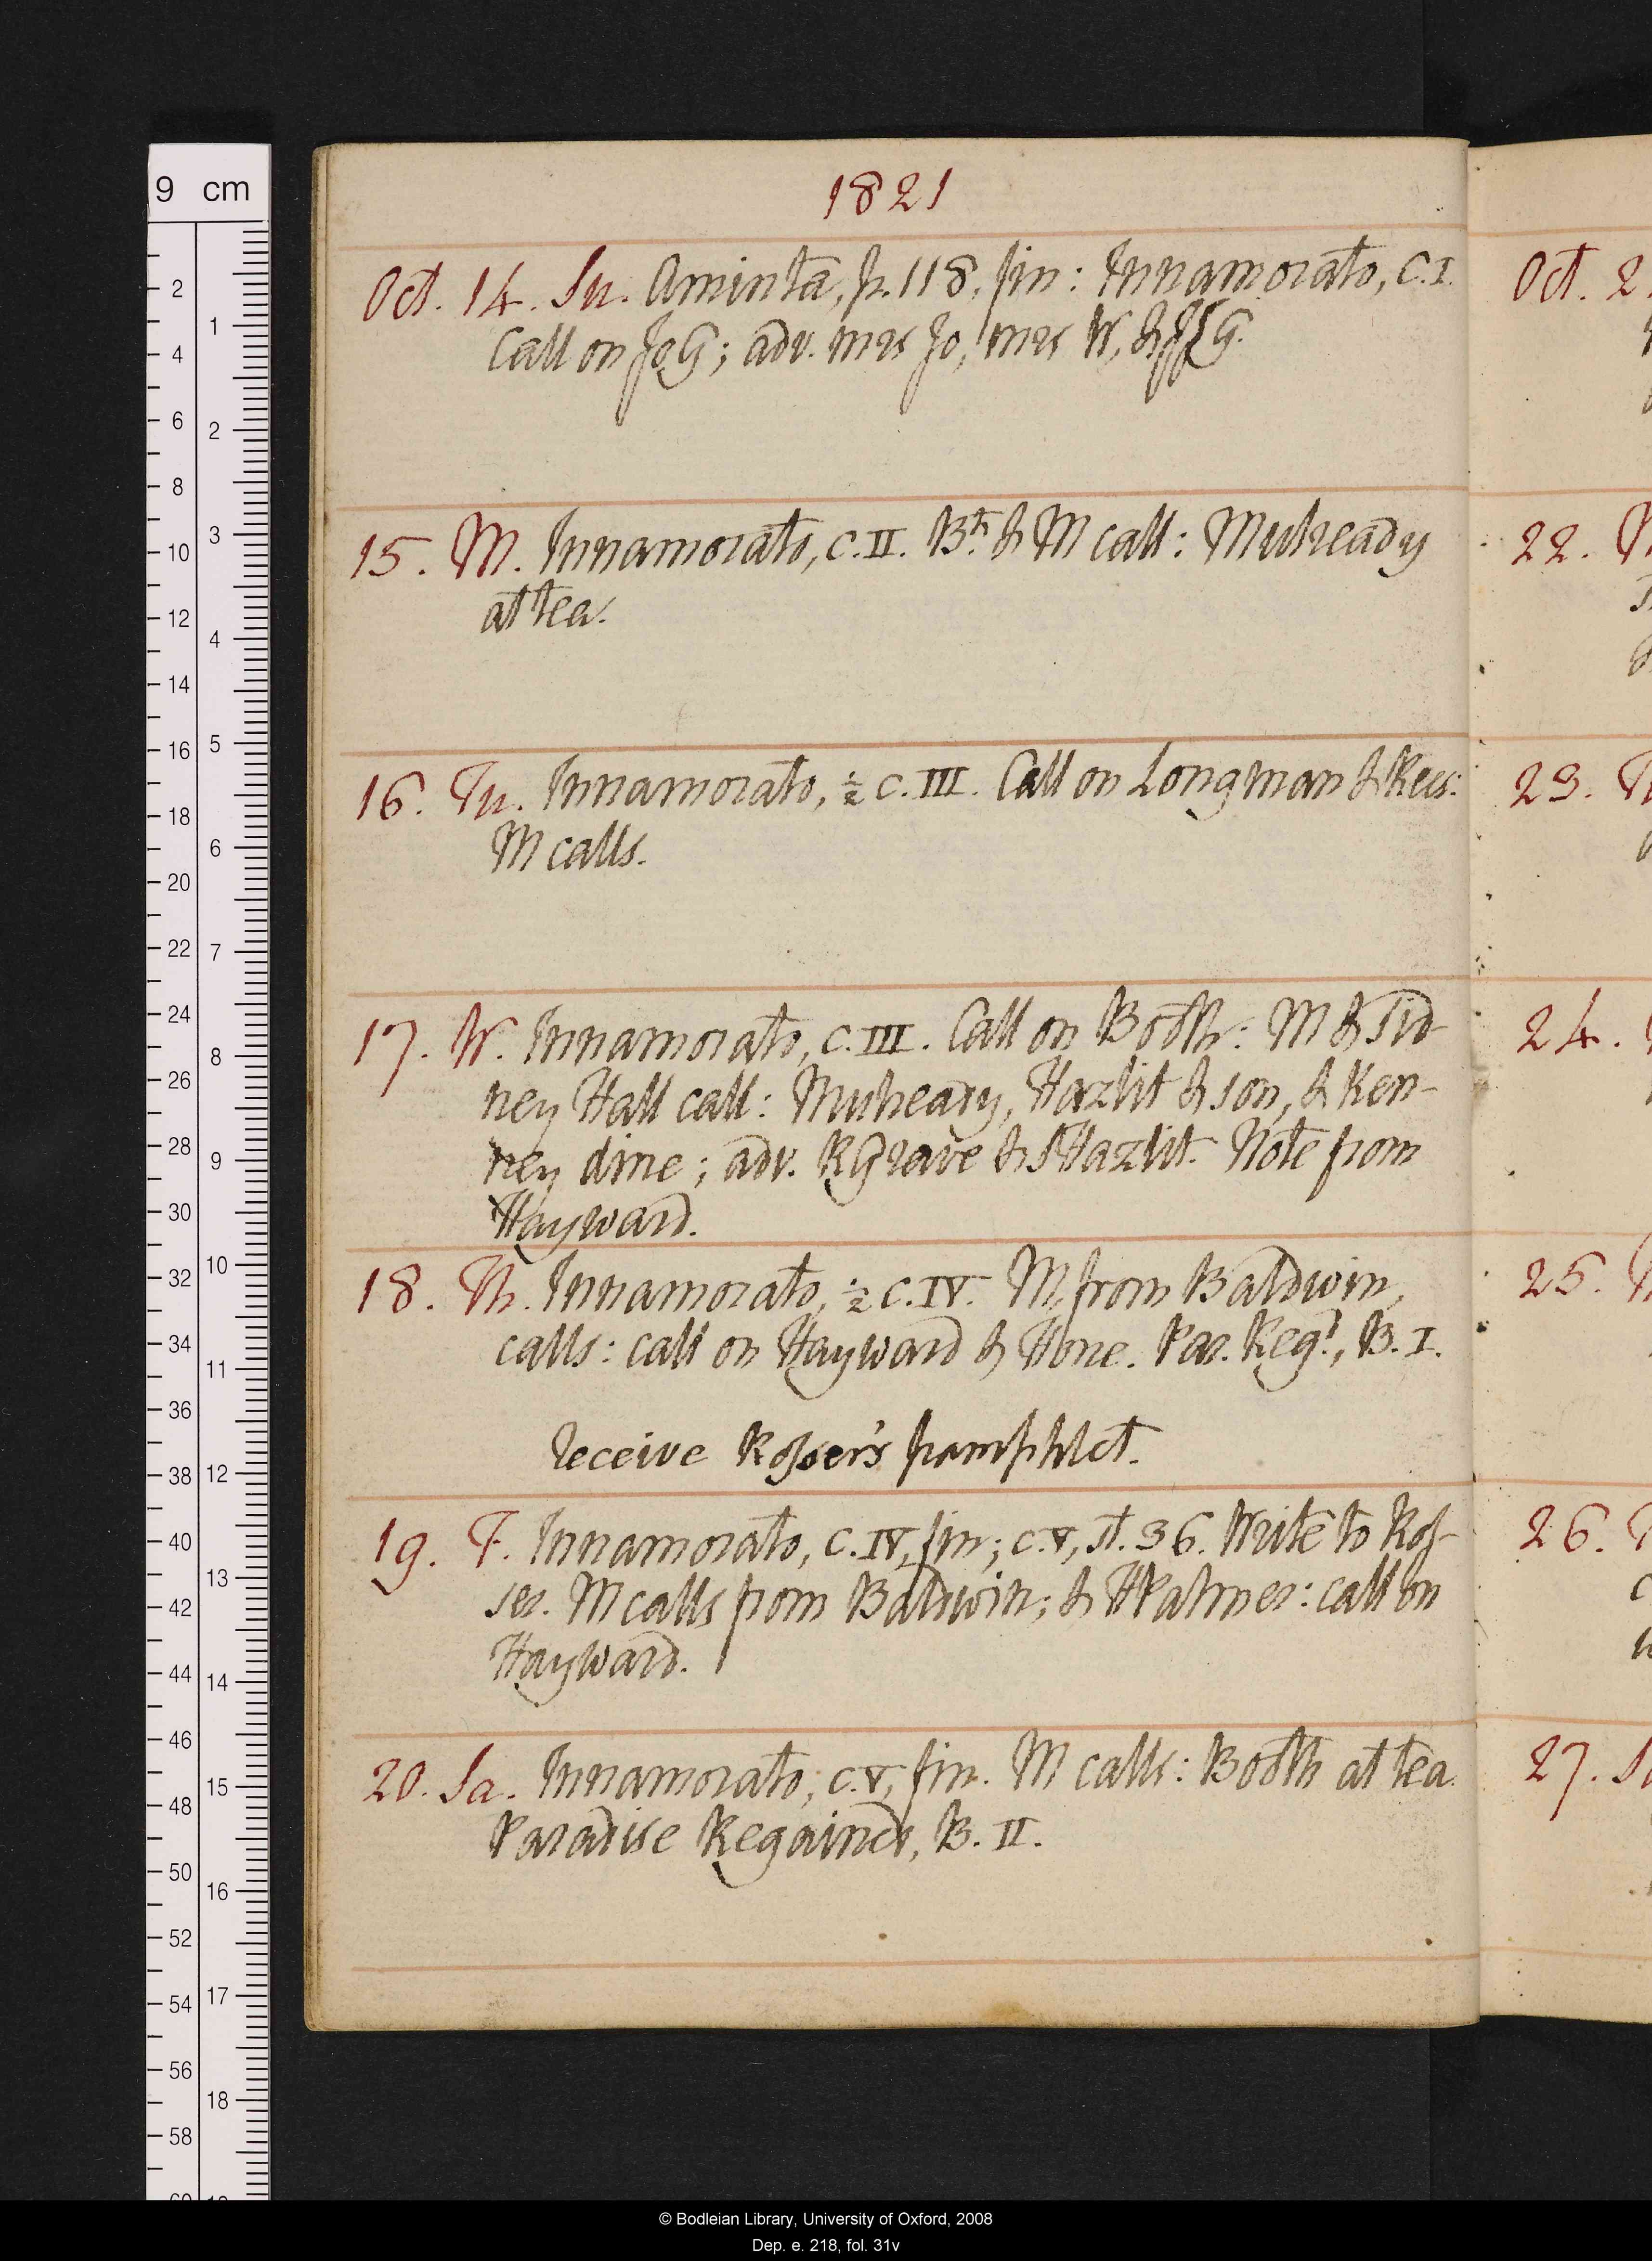 1821
Oct. 14. Su. Aminta, p. 118, fin: Innamorato, C. I.
Call on JoG; adv. mrs Jo, mrs W, &
15. M. Innamorato, C. II. Bth & M call: Mulready
at tea.
16. Tu. Innamorato, ½ C. III. Call on Longman & Rees:
M calls.
17. W. Innamorato, C. III. Call on Booth: M & Sid-
ney Hall call: Mulready, Hazlit & son, & Ken-
ney dine; adv. RGrave & SHazlit. Note from
Hayward.
18. Th. Innamorato, ½ C. IV. M, from Baldwin,
calls: call on Hayward & Hone. Par. Regd, B. I.
receive Rosser's pamphlet.
19. F. Innamorato, C. IV, fin; C. V, st. 36. Write to Ros-
ser. M calls from Baldwin; & HPalmer: call on
Hayward.
20. Sa. Innamorato, C. V, fin. M calls: Booth at tea.
Paradise Regained, B. II.
Oct. 2
22.
23.
24.
25.
26.
27.
9 cm
2
4
6
8
10
12
14
16
18
20
22
24
26
28
30
32
34
36
38
40
42
44
46
48
50
52
54
56
58
1
2
3
4
5
6
7
8
9
10
11
12
13
14
15
16
17
18
© Bodleian Library, University of Oxford, 2008
Dep. e. 218, fol. 31v